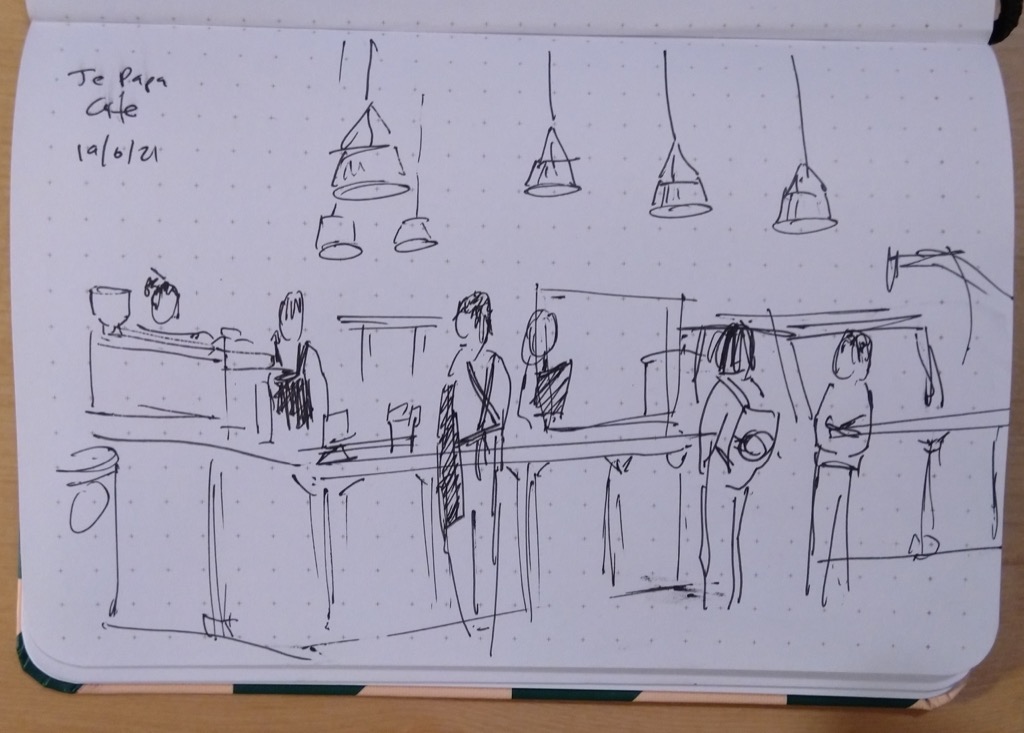 Te Papa
Cafe
19/6/21